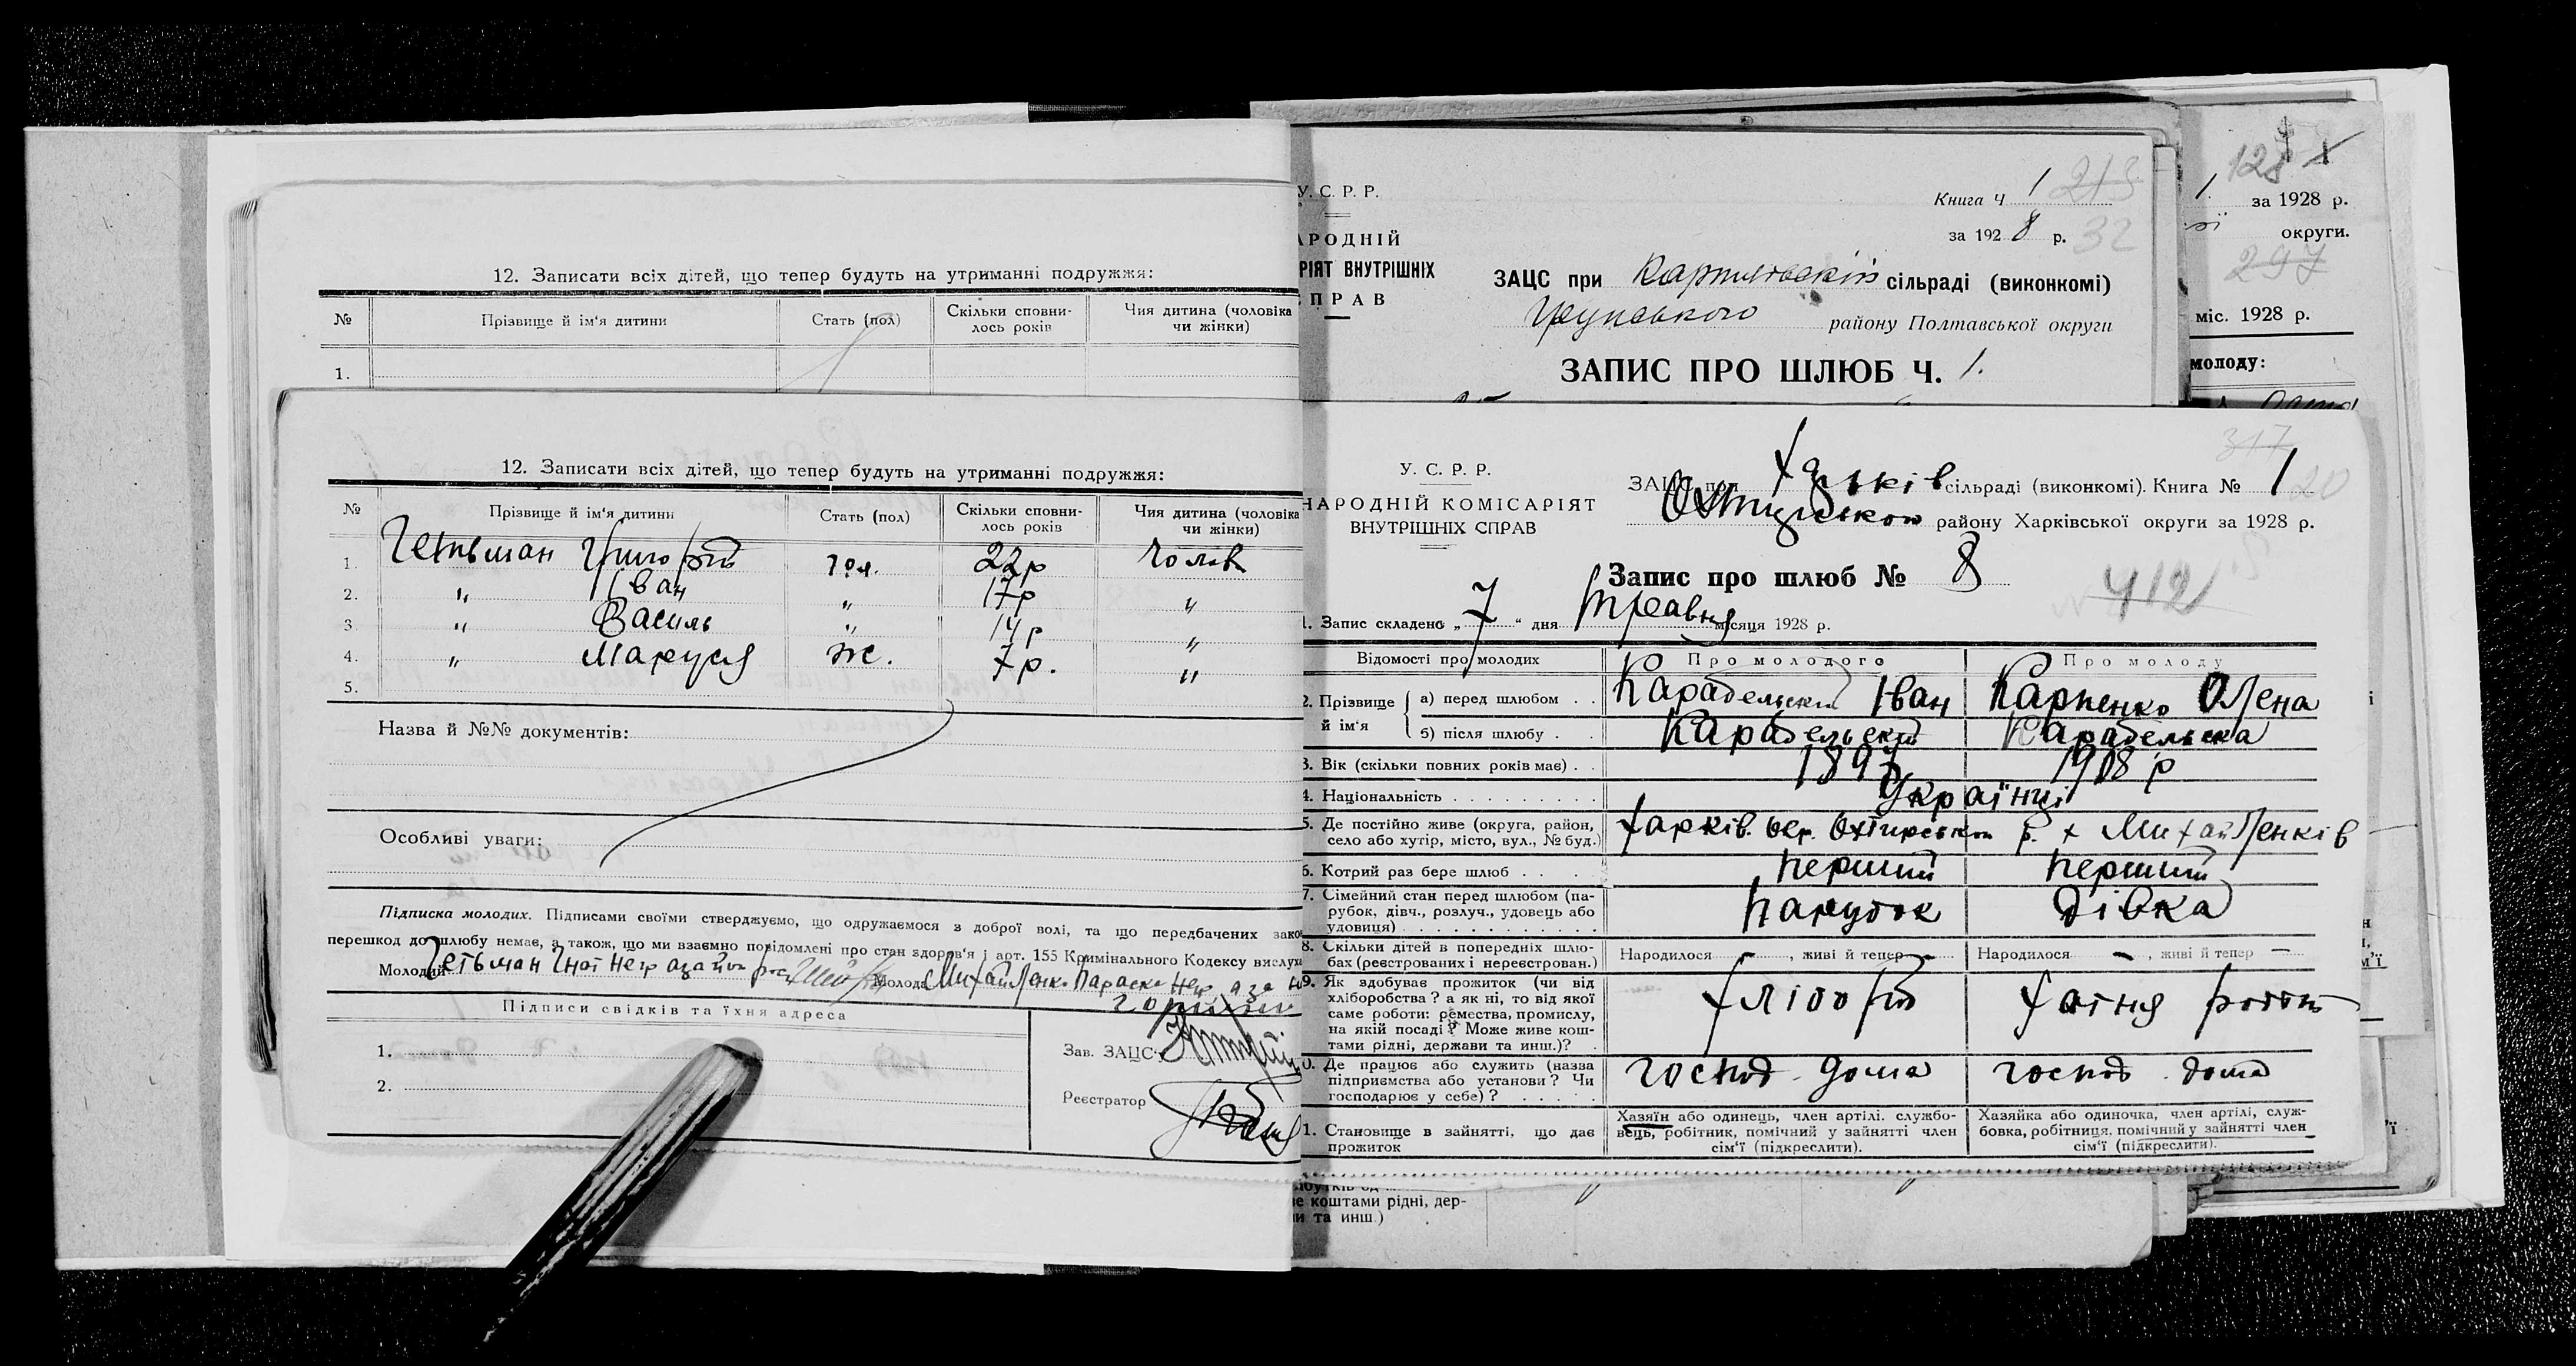 12. Записати всіх дітей, що тепер будуть на утриманні подружжя:
№ Прізвище й ім'я дитини Стать (пол) Скільки сповни-лось років Чия дитина (чоловіка чи жінки)
1.
12. Записати всіх дітей, що тепер будуть на утриманні подружжя:
№ Прізвище й ім'я дитини Стать (пол) Скільки сповни-лось років Чия дитина (чоловіка чи жінки)
1. Гетьман Григорій чол. 22р Чолов
2. " Іван " 17р "
3. " Василь " 14р "
4. " Маруся жс. 7р. "
5.
Назва й №№ документів:
Особливі уваги:
Підписка молодих. Підписами своїми стверджуємо, що одружаємося з доброї волі, та що передбачених зако
перешкод до шлюбу немає, а також, що ми взаємно повідомлені про стан здоров'я і арт. 155 Кримінального Кодексу вислух
Молодий Гетьман Гнат Молода Михайленко Параска
Підписи свідків та їхня адреса
1.
2.
Зав. ЗАЦС
Реєстратор
У. С. Р. Р.
АРОДНІЙ
РІЯТ ВНУТРІШНІХ
ПРАВ
Книга Ч 1 213
за 1928 р. 32
ЗАЦС при сільраді (виконкомі)
Грунського району Полтавської округи
ЗАПИС ПРО ШЛЮБ Ч. 1.
128
1. за 1928 р.
округи.
297
міс. 1928 р.
молоду:
У. С. Р. Р.
НАРОДНІЙ КОМІСАРІЯТ
ВНУТРІШНІХ СПРАВ
317
ЗАЦС при сільраді (виконкомі). Книга № 1 20
району Харківської округи за 1928 р.
Запис про шлюб № 8
412
1. Запис складено „ 7 " дня Травня місяця 1928 р.
Відомості про молодих Про молодого Про молоду
2. Прізвище й ім'я а) перед шлюбом . . Карабельский Іван Карпенко Олена
б) після шлюбу . Карабельский Карабельска
3. Вік (скільки повних років має) . . 1897 1908 р
4. Національність . . . . . . . . . Українці
5. Де постійно живе (округа, район, село або хутір, місто, вул., № буд.) Харків. окр. Охтирськом р. х Михайленків
6. Котрий раз бере шлюб . . . перший перший
7. Сімейний стан перед шлюбом (па-рубок, дівч., розлуч., удовець або удовиця) . . . . . . . . . . . . Парубок Дівка
8. Скільки дітей в попередніх шлю-бах (реєстрованих і нереєстрован.) Народилося —, живі й тепер — Народилося —, живі й тепер —
9. Як здобуває прожиток (чи від хліборобства? а як ні, то від якої саме роботи: ремества, промислу, на якій посаді? Може живе кош-тами рідні, держави та инш.)? Хлібороб Хатня робот
0. Де працює або служить (назва підприємства або установи? Чи господарює у себе)? . . . . . господ. дома господ. дома
1. Становище в зайнятті, що дає прожиток Хазяїн або одинець, член артілі. службо-вець, робітник, помічний у зайнятті член сім'ї (підкреслити). Хазяйка або одиночка, член артілі, служ-бовка, робітниця, помічний у зайнятті член сім'ї (підкреслити).
е коштами рідні, дер-
и та инш.)